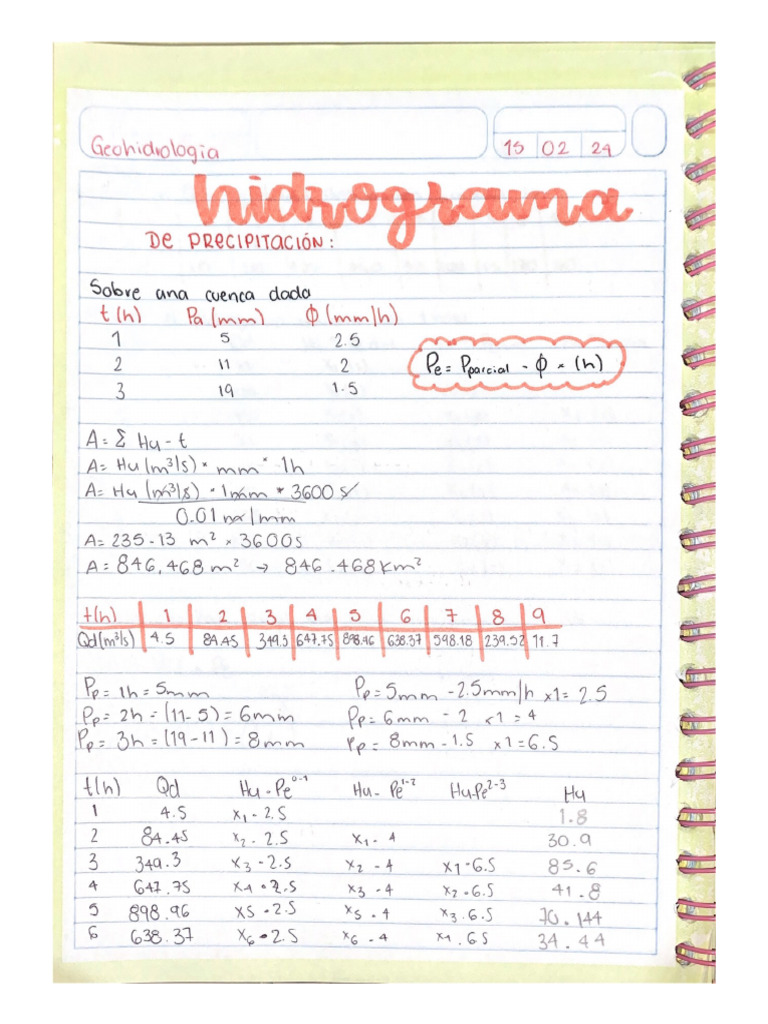 Geohidrologia 15 02 24
hidrograma
De Precipitación:
Sobre una cuenca dada
t (h) Pa (mm) Φ (mm/h)
1 5 2.5
2 11 2
3 19 1.5
Pe = Pparcial - Φ × (h)
A = Σ Hu - t
A = Hu (m³/s) * mm * 1h
A = Hu (m³/s) * 1mm * 3600 s
0.01 m/mm
A = 235.13 m² × 3600s
A = 846,468 m² → 846.468 Km²
t(h) 1 2 3 4 5 6 7 8 9
Qd(m³/s) 4.5 84.45 349.3 647.75 898.96 638.37 598.18 239.52 11.7
Pp = 1h = 5mm Pp = 5mm - 2.5mm/h x1 = 2.5
Pp = 2h = (11-5) = 6mm Pp = 6mm - 2 x1 = 4
Pp = 3h = (19-11) = 8mm Pp = 8mm - 1.5 x1 = 6.5
t(h) Qd Hu - Pe⁰⁻¹ Hu - Pe¹⁻² Hu-Pe²⁻³ Hu
1 4.5 x₁ - 2.5 1.8
2 84.45 x₂ - 2.5 x₁ - 4 30.9
3 349.3 x₃ - 2.5 x₂ - 4 x₁ - 6.5 85.6
4 647.75 x₄ • 2.5 x₃ - 4 x₂ - 6.5 41.8
5 898.96 x5 • 2.5 x₅ • 4 x₃ . 6.5 70.144
6 638.37 x₆ • 2.5 x₆ - 4 x₄ . 6.5 34.44